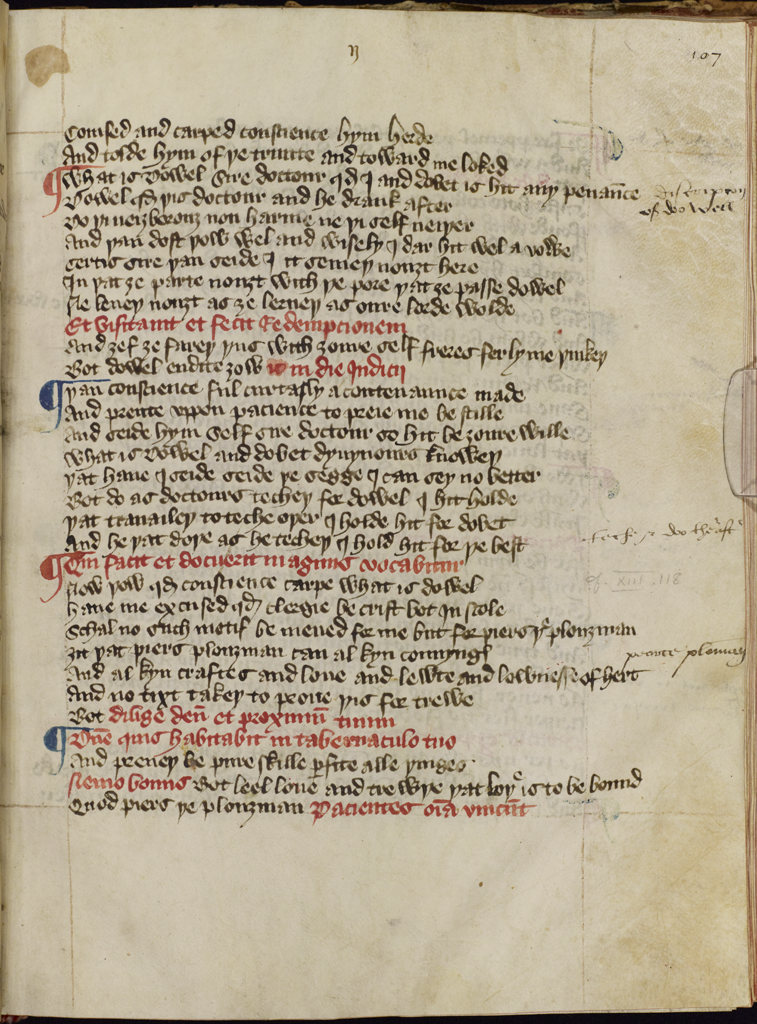 107
Comsed and carped conscience hym herde
And tolde hym of þe trinite and toward me loked
What is dowel Sire doctour qd I and dobet is hit any penance
Dowel qd þis doctour and he drank after
Do þi neiȝboreȝ non harme ne þi self neiþer
And þan dost þow wel and wisely I dar hit wel a vowe
Certis sire þan seide I it semeþ nouȝt here
In þat ȝe parte nouȝt with þe pore þat ȝe passe dowel
Ne leueþ nouȝt as ȝe lerneþ as oure lorde wolde
Et visitauit et fecit Redempcionem
And ȝef ȝe fareþ þus with ȝoure self freres ferly me þinkeþ
Bot dowel endite ȝow in die Iudicij
Þan conscience ful curtasly a contenaunce made
And preute vppon pacience to preie me be stille
And seide hym self sire doctour so hit be ȝoure wille
What is dowel and dobet dyuynours knoweþ
Þat haue I seide seide þe segge I can sey no better
Bot do as doctours techeþ for dowel I hit holde
Þat trauaileþ to teche oþer I holde hit for dobet
And he þat doþe as he techeþ I hold hit for þe best
Qui facit et docuerit magnus vocabitur
Now þow qd conscience carpe what is dowel
Haue me excused qd clergie be crist bot in scole
Schal no such motif be meued for me but for piers þe plouȝman
ȝit þat piers plouȝman can al kyn connyngs
And al kyn craftes and loue and lewte and lownesse of hert
And no tixt takeþ to proue þis for trewe
Bot dilige deum et proximum tuum
Domine quis habitabit in tabernaculo tuo
And preueþ be pure skille perfite alle þinges
Nemo bonus Bot leel loue and trewþe þat loþe is to be bound
Quod piers þe plouȝman Pacientes omnia vincunt
of do well
cf. XIII. 118